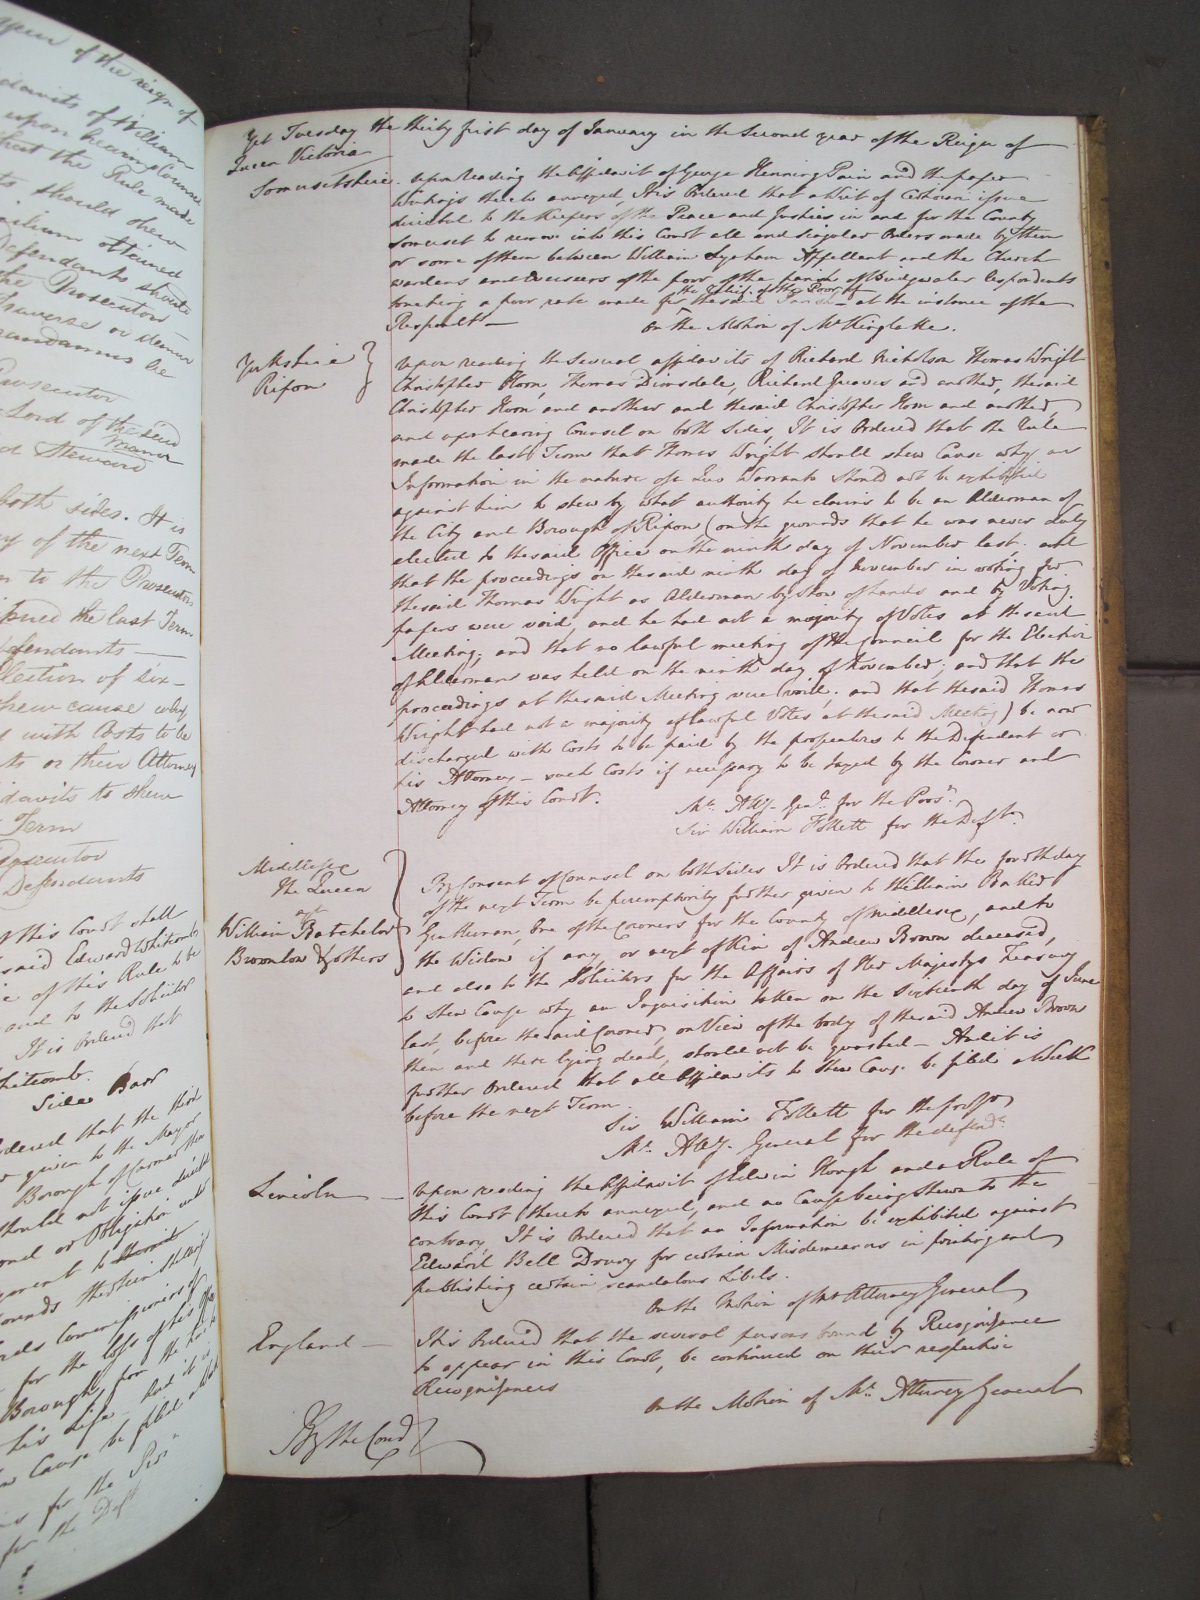 appear of the reign of
davits of William
upon hearing Counsel
that the Rule made
should shew
Defendants should
the Prosecutor
Traverse or demur
mandamus be
Prosecutor
Lord of the said
Manor
Steward
both sides. It is
of the next Term
to the Prosecutor
issued the last Term
Defendants
Election of six
shew cause why
with Costs to be
or their Attorney
davits to shew
Term
Prosecutor
Defendants
of this Court shall
said Edward Whitcomb
of this Rule to be
and to the Solicitor
It is ordered that
Whitcomb.
Side Bar
ordered that the third
given to the Mayor
Borough of
should not issue
or Obligation under
Commissioners of
for the loss of his
Borough, for the
his Life. And it is
Cause be filed
for the
for the Deft
Yet Tuesday the thirty first day of January in the Second year of the Reign of
Queen Victoria
Somersetshire. Upon reading the Affidavit of George Henning Pain and the paper
Writings thereto annexed, It is Ordered that a Writ of Certiorari issue
directed to the Keepers of the Peace and Justices in and for the County
Somerset to remove into this Court all and singular Orders made by them
or some of them between William Lyddon Appellant and the Church
wardens and Overseers of the poor of the parish of Bridgwater Respondents
touching a poor rate made for the relief of the Poor of the said Parish at the instance of the
Respondts
On the Motion of Mr Kinglake.
Yorkshire
Ripon
Upon reading the several affidavits of Richard Nicholson Thomas Wright
Christopher Horn, Thomas Dinsdale, Richard Greaves and another, the said
Christopher Horn and another and the said Christopher Horn and another,
and upon hearing Counsel on both Sides, It is Ordered that the Rule
made the last Term that Thomas Wright should shew Cause why an
Information in the nature of a Quo Warranto should not be exhibited
against him to shew by what authority he claims to be an Alderman of
the City and Borough of Ripon (on the grounds that he was never duly
elected to the said Office on the ninth day of November last; and
that the proceedings on the said ninth day of November in voting for
the said Thomas Wright as Alderman by show of hands and by Voting
papers were void, and he had not a majority of Votes at the said
Meeting; and that no lawful meeting of the Council for the Election
of Alderman was held on the ninth day of November; and that the
proceedings at the said Meeting were void; and that the said Thomas
Wright had not a majority of lawful Votes at the said Meeting) be now
discharged with Costs to be paid by the prosecutors to the Defendant or
his Attorney – such Costs if necessary to be taxed by the Coroner and
Attorney of this Court.
Mr. Atty. Genl. for the Prosr.
Sir William Follett for the Deft.
Middlesex
The Queen
agt
William Batchelor
Brownlow & others
By Consent of Counsel on both sides It is Ordered that the fourth day
of the next Term be peremptorily further given to William Baker
Gentleman, One of the Coroners for the County of Middlesex, and to
the Widow if any, or next of Kin of Andrew Brown deceased,
and also to the Solicitors for the Affairs of Her Majestys Treasury
to shew Cause why an Inquisition taken on the Sixteenth day of June
last, before the said Coroner, on View of the body of the said Andrew Brown
then and there lying dead, should not be quashed – And it is
further Ordered that all Affidavits to shew Cause be filed a Week
before the next Term.
Sir William Follett for the prosr.
Mr. Atty. General for the defendts
Lincoln
Upon reading the Affidavit of Edwin Hough and a Rule of
this Court thereto annexed, and no Cause being shewn to the
contrary, It is Ordered that an Information be exhibited against
Edward Bell Drury for certain Misdemeanors in printing and
publishing certain scandalous Libels.
On the Motion of Mr Attorney General
England
It is Ordered that the several persons bound by Recognizance
to appear in this Court, be continued on their respective
Recognizances
On the Motion of Mr. Attorney General
By the Court